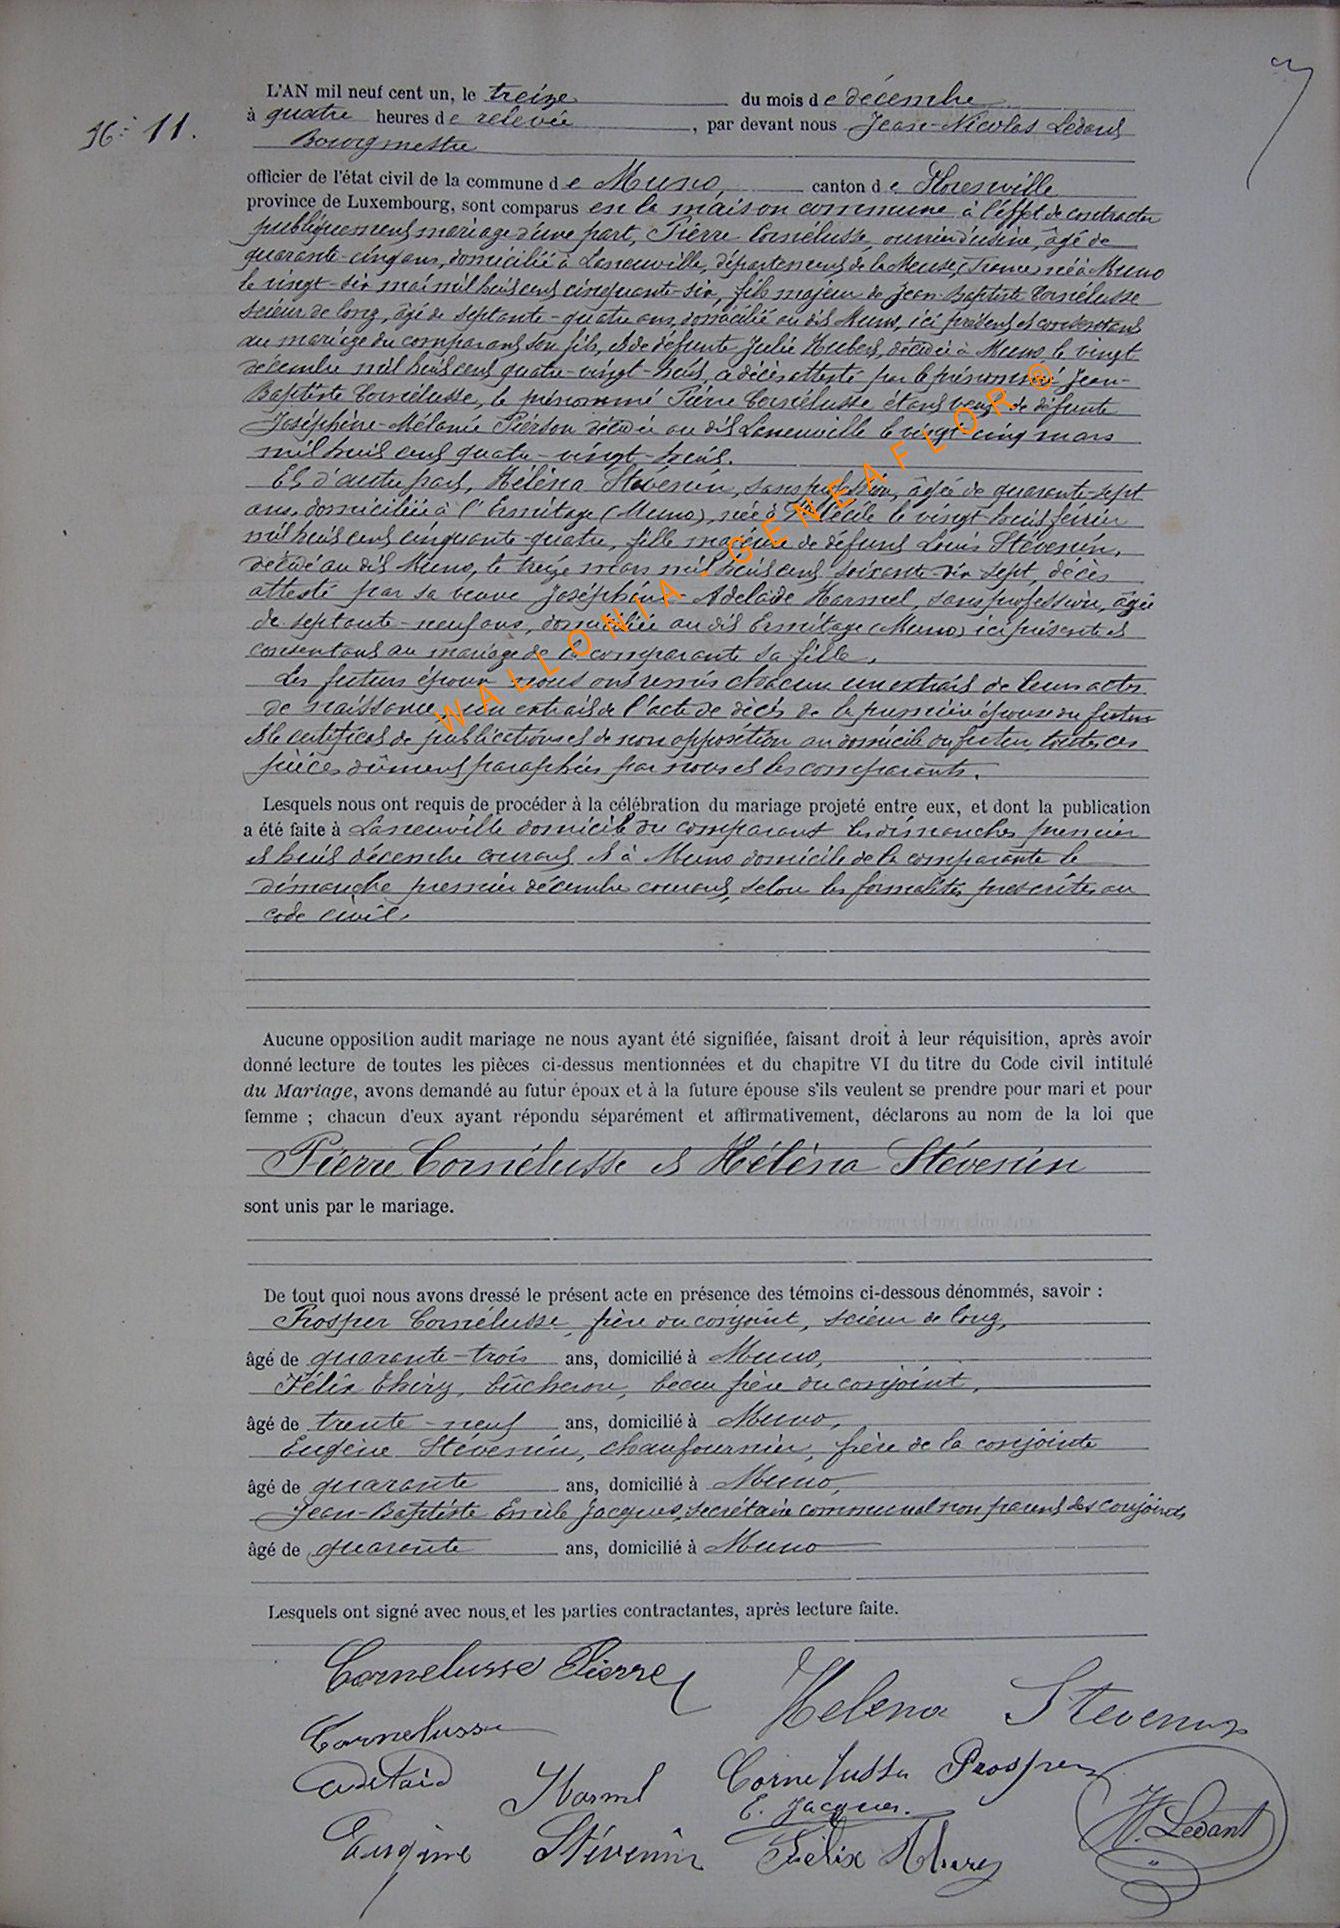 7
N° 11.
L'AN mil neuf cent un, le treize du mois de décembre
à quatre heures de relevée, par devant nous Jean-Nicolas Ledant
Bourgmestre
officier de l'état civil de la commune de Muno, canton de Florenville
province de Luxembourg, sont comparus en la maison commune à l'effet de contracter
publiquement mariage d'une part, Pierre Cornélusse, ouvrier d'usine, âgé de
quarante-cinq ans, domicilié à Laneuville, département de la Meuse (France) né à Muno
le vingt-six mai mil huit cent cinquante-six, fils majeur de Jean-Baptiste Cornélusse
scieur de long, âgé de septante-quatre ans, domicilié au dit Muno, ici présent et consentant
au mariage du comparant son fils, et de défunte Julie Hubert, décédée à Muno le vingt
décembre mil huit cent quatre-vingt-huit, ce décès attesté par le prénommé Jean-
Baptiste Cornélusse, le prénommé Pierre Cornélusse étant veuf de défunte
Joséphine-Mélanie Pierson décédée au dit Laneuville le vingt-cinq mars
mil huit cent quatre-vingt-huit.
Et d'autre part, Héléna Stévenin, sans profession, âgée de quarante-sept
ans, domiciliée à l'Ermitage (Muno), née à Ste Cécile le vingt-huit février
mil huit cent cinquante-quatre, fille majeure de défunt Louis Stévenin,
décédé au dit Muno, le treize mars mil huit cent soixante-dix-sept, décès
attesté par sa veuve Joséphine-Adelaïde Harmel, sans profession, âgée
de septante-neuf ans, domiciliée au dit Ermitage (Muno) ici présente et
consentant au mariage de la comparante sa fille.
Les futurs époux nous ont remis chacun un extrait de leurs actes
de naissance, un extrait de l'acte de décès de la première épouse du futur
et le certificat de publications et de non opposition au domicile du futur toutes ces
pièces dûment paraphées par nous et les comparants.
Lesquels nous ont requis de procéder à la célébration du mariage projeté entre eux, et dont la publication
a été faite à Laneuville domicile du comparant les dimanches premier
et huit décembre courant et à Muno domicile de la comparante le
dimanche premier décembre courant, selon les formalités prescrites au
code civil.
Aucune opposition audit mariage ne nous ayant été signifiée, faisant droit à leur réquisition, après avoir
donné lecture de toutes les pièces ci-dessus mentionnées et du chapitre VI du titre du Code civil intitulé
du Mariage, avons demandé au futur époux et à la future épouse s'ils veulent se prendre pour mari et pour
femme ; chacun d'eux ayant répondu séparément et affirmativement, déclarons au nom de la loi que
Pierre Cornélusse et Héléna Stévenin
sont unis par le mariage.
De tout quoi nous avons dressé le présent acte en présence des témoins ci-dessous dénommés, savoir :
Prosper Cornélusse, frère du conjoint, scieur de long,
âgé de quarante-trois ans, domicilié à Muno,
Félix Théry, bûcheron, beau frère du conjoint,
âgé de trente-neuf ans, domicilié à Muno,
Eugène Stévenin, chaufournier, frère de la conjointe
âgé de quarante ans, domicilié à Muno,
Jean-Baptiste Emile Jacques, secrétaire communal non parent des conjoints
âgé de quarante ans, domicilié à Muno
Lesquels ont signé avec nous et les parties contractantes, après lecture faite.
Cornelusse Pierre
Helena Stevenin
Cornelusse
Harmel
Cornelusse Prosper
E. Jacques.
N. Ledant
Eugène Stévenin
Félix Théry
WALLONIA - GENEAFLOR ®